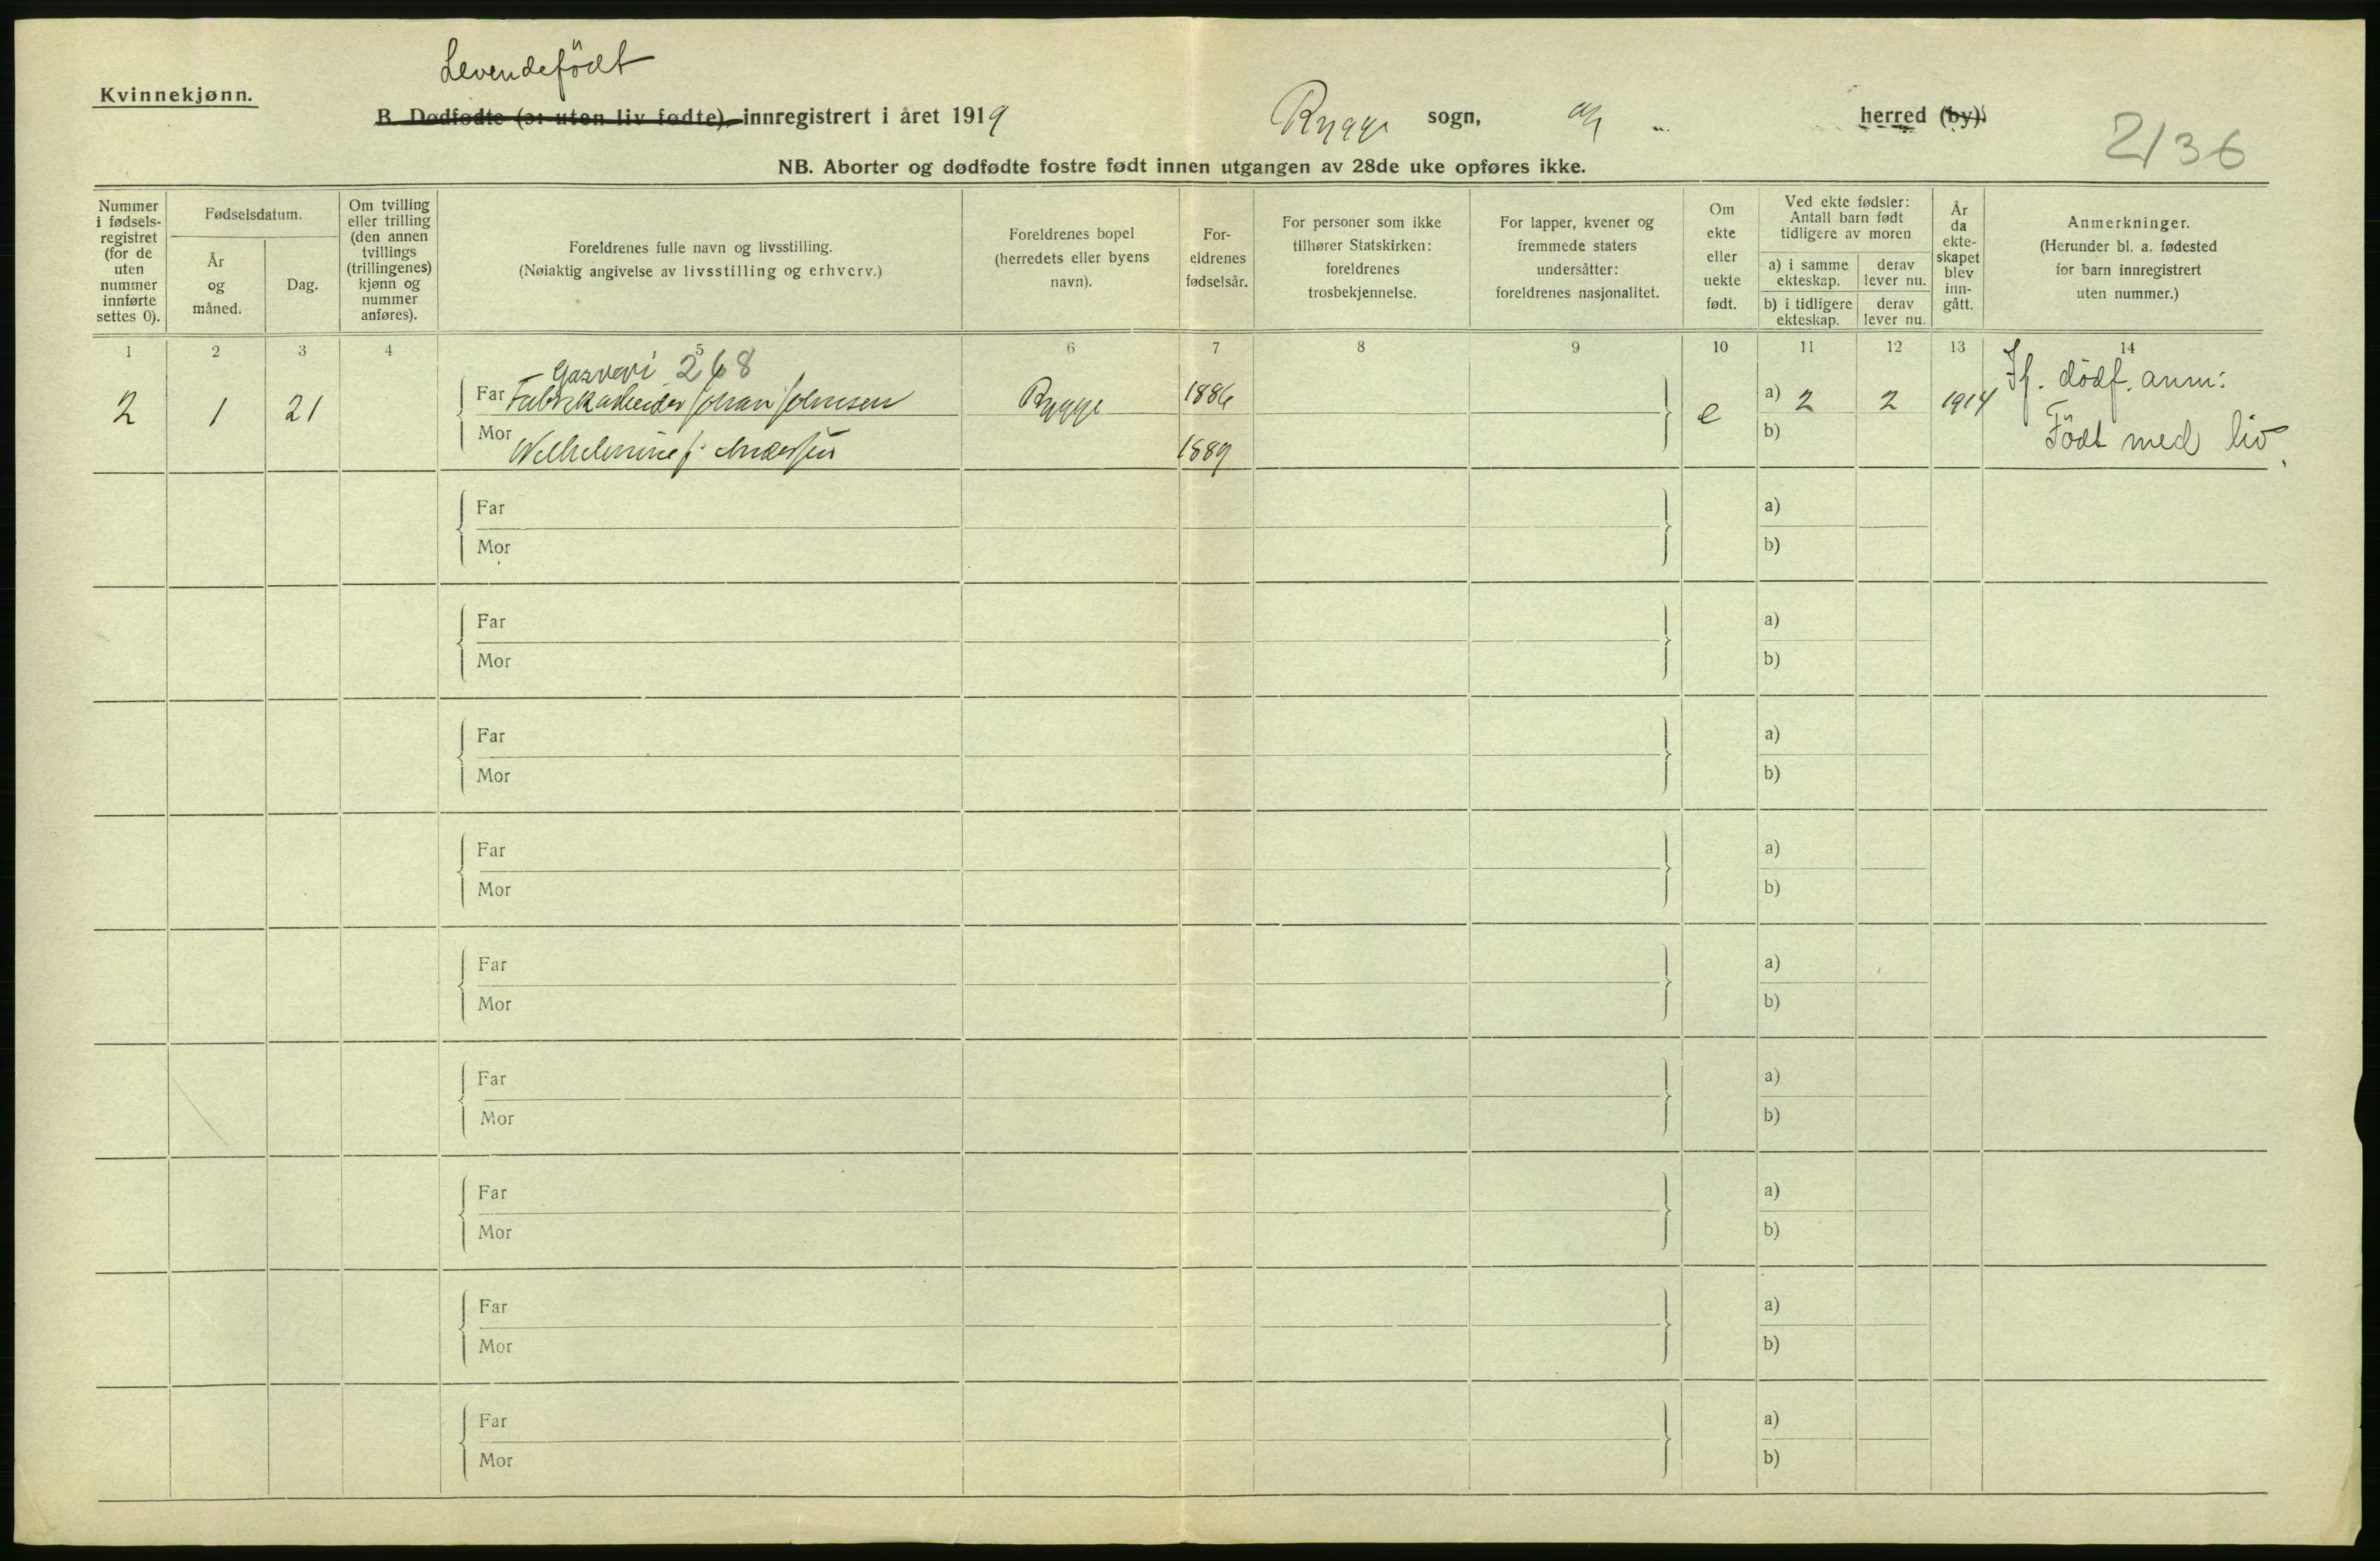 Levendefödt
Kvinnekjønn.
B. Dødfødte (ɔ: uten liv fødte), innregistrert i året 1919 Rygge sogn, herred (by).
2136
NB. Aborter og dødfødte fostre født innen utgangen av 28de uke opføres ikke.
Nummer i fødsels-registret (for de uten nummer innførte settes 0).
Fødselsdatum.
År og måned.
Dag.
Om tvilling eller trilling (den annen tvillings (trillingenes) kjønn og nummer anføres).
Foreldrenes fulle navn og livsstilling.
(Nøiaktig angivelse av livsstilling og erhverv.)
Foreldrenes bopel (herredets eller byens navn).
For-eldrenes fødselsår.
For personer som ikke tilhører Statskirken: foreldrenes trosbekjennelse.
For lapper, kvener og fremmede staters undersåtter: foreldrenes nasjonalitet.
Om ekte eller uekte født.
Ved ekte fødsler: Antall barn født tidligere av moren
a) i samme ekteskap.
derav lever nu.
b) i tidligere ekteskap.
derav lever nu.
År da ekte-skapet blev inn-gått.
Anmerkninger.
(Herunder bl. a. fødested for barn innregistrert uten nummer.)
1 2 3 4 5 6 7 8 9 10 11 12 13 14
268
2 1 21 Far Fabrikarbeider Johan Johnsen Rygge 1886 e a) 2 2 1914 If. dödf. anm:
Mor Wilhelmine f. Andersen 1889 b) Födt med liv.
Far a)
Mor b)
Far a)
Mor b)
Far a)
Mor b)
Far a)
Mor b)
Far a)
Mor b)
Far a)
Mor b)
Far a)
Mor b)
Far a)
Mor b)
Far a)
Mor b)